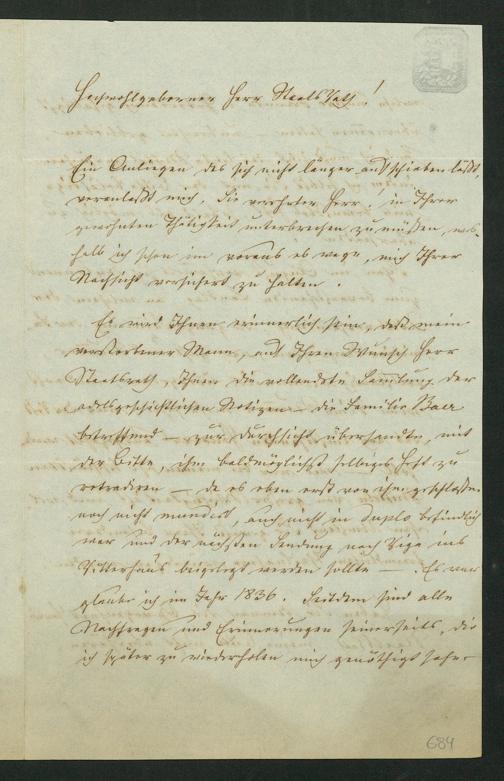 Hochwohlgeborner Herr StaatsRath!
Ein Anliegen, das sich nicht länger aufschieben läßt,
veranlaßt mich, Sie verehrter Herr! in Ihrer
gewohnten Thätigkeit unterbrechen zu müssen, wes-
halb ich schon im voraus es wage, mich Ihrer
Nachsicht versichert zu halten.
Es wird Ihnen erinnerlich sein, daß mein
verstorbener Mann, auf Ihren Wunsch Herr
Staatsrath, Ihnen die vollendete Samlung der
adelsgeschichtlichen Notizen – die Familie Baer
betreffend – zur Durchsicht übersandte, mit
der Bitte, ihm baldmöglichst selbiges Heft zu
retradiren – da es eben erst von ihm geschlossen
noch nicht mundirt, auch nicht in Duplo befindlich
war und der nächsten Sendung nach Riga ins
Ritterhaus beigelegt werden sollte –. Es war
glaube ich im Jahr 1836. Seitdem sind alle
Nachfragen und Erinnerungen seinerseits, die
ich später zu wiederholen mich genöthigt sahe
684